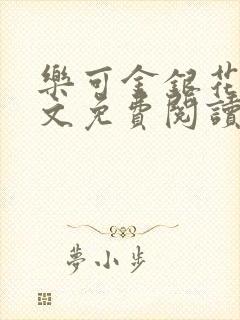 樂可金銀花
文免費閱讀
夢小步